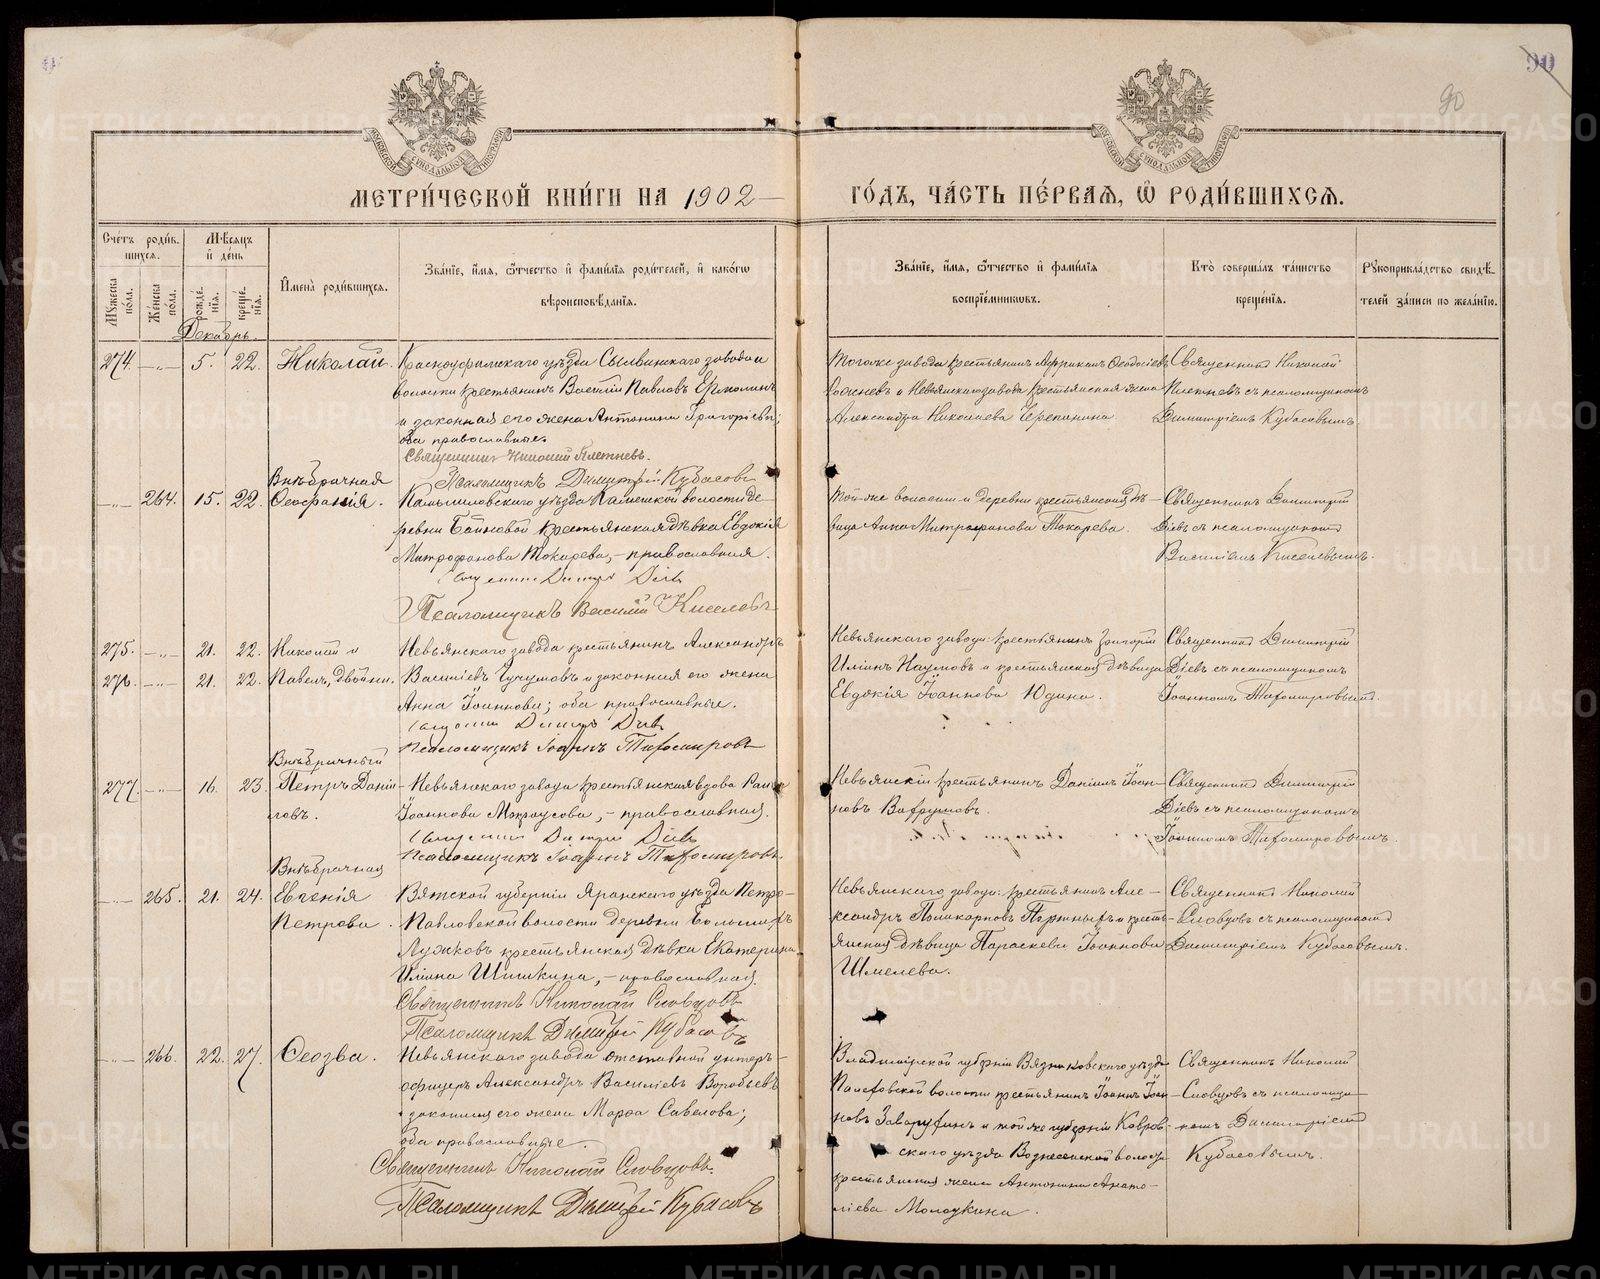 90
90
МОСКОВСКОЙ СѴНОДАЛЬНОЙ ТИПОГРАФІИ
МОСКОВСКОЙ СѴНОДАЛЬНОЙ ТИПОГРАФІИ
МЕТРИ́ЧЕСКОЙ КНИ́ГИ НА 1902 ГО́ДЪ, ЧА́СТЬ ПЕ́РВАЯ, Ѡ РОДИ́ВШИХСЯ.
Сче́тъ роди́вшихся.
Мꙋ́жеска по́ла.
Же́нска по́ла.
Мѣ́сяцъ и҆ де́нь
рожде́нїя.
креще́нїя.
И҆мена̀ роди́вшихся.
Зва́нїе, и҆́мя, ѻ҆́тчество и҆ фами́лїя роди́телей, и҆ како́гѡ
вѣроисповѣ́данїя.
Зва́нїе, и҆́мя, ѻ҆́тчество и҆ фами́лїя
воспрїе́мникѡвъ.
Кто̀ соверша́лъ та́инство
креще́нїя.
Рꙋкоприкла́дство свидѣ́-
телей за́писи по жела́нїю.
Декабрь.
274. —"— 5. 22. Николай.
Красноуфимскаго уѣзда Сылвинскаго завода и
волости крестьянинъ Василій Павловъ Ермолинъ
и законная его жена Антонина Григоріева;
оба православные.
Священникъ Николай Плетневъ.
Псаломщикъ Димитрій Кубасовъ
Тогоже завода крестьянинъ Африканъ Ѳеодосіевъ
и Невьянскаго завода крестьянская жена
Александра Николаева Черепанина.
Священникъ Николай
Плетневъ съ псаломщикомъ
Димитріемъ Кубасовымъ.
Внѣбрачная
—"— 264. 15. 22. Ѳеофанія.
Камышловскаго уѣзда волости де-
ревни крестьянская дѣвка Евдокія
Митрофанова Токарева, – православная.
Священникъ Димитрій Діевъ
Псаломщикъ Василій Киселевъ
Той-же волости и деревни крестьянская дѣ-
вица Анна Митрофанова Токарева.
Священникъ Димитрій
Діевъ съ псаломщикомъ
Василіемъ Киселевымъ.
275. —"— 21. 22. Николай и
276. —"— 21. 22. Павелъ, двойни.
Невьянскаго завода крестьянинъ Александръ
Василіевъ Чучумовъ и законная его жена
Анна Іоаннова; оба православные.
Священникъ Димитрій Діевъ
Псаломщикъ Іоаннъ Тихомировъ
Невьянскаго завода: крестьянинъ Григорій
Иліинъ Наумовъ и крестьянская дѣвица
Евдокія Іоаннова Юдина.
Священникъ Димитрій
Діевъ съ псаломщикомъ
Іоанномъ Тихомировымъ.
Внѣбрачный
277. —"— 16. 23. Петръ Данiи-
ловъ.
Невьянскаго завода крестьянская вдова
Іоаннова Мокроусова, – православная.
Священникъ Димитрій Діевъ
Псаломщикъ Іоаннъ Тихомировъ.
Невьянскій крестьянинъ Даніилъ Іоан-
новъ Вахрумовъ.
Священникъ Димитрій
Діевъ съ псаломщикомъ
Іоанномъ Тихомировымъ.
Внѣбрачная
—"— 265. 21. 24. Евгенія
Петрова.
Вятской губерніи Яранскаго уѣзда Петро-
Павловской волости деревни Большихъ
Лужковъ крестьянская дѣвка Екатерина
Иліина Шишкина, – православная.
Священникъ Николай Словцовъ
Псаломщикъ Димитрій Кубасовъ
Невьянскаго завода: крестьянинъ Але-
ксандръ Поликарповъ и кресть-
янская дѣвица Параскева Іоаннова
Шмелева.
Священникъ Николай
Словцовъ съ псаломщикомъ
Димитріемъ Кубасовымъ.
—"— 266. 22. 27. Ѳеозва.
Невьянскаго завода отставной унтеръ-
офицеръ Александръ Василіевъ Воробьевъ
и законная его жена Марѳа Савелова;
оба православные.
Священникъ Николай Словцовъ.
Псаломщикъ Димитрій Кубасовъ
Владимірской губерніи Вязниковскаго уѣзда
Палеховской волости крестьянинъ Іоаннъ Іоан-
новъ Захарухинъ и той же губерніи Ковров-
скаго уѣзда Вознесенской волости
крестьянская жена Антонина Анато-
ліева Молодкина.
Священникъ Николай
Словцовъ съ псаломщи-
комъ Димитріемъ
Кубасовымъ.
METRIKI.GASO-URAL.RU